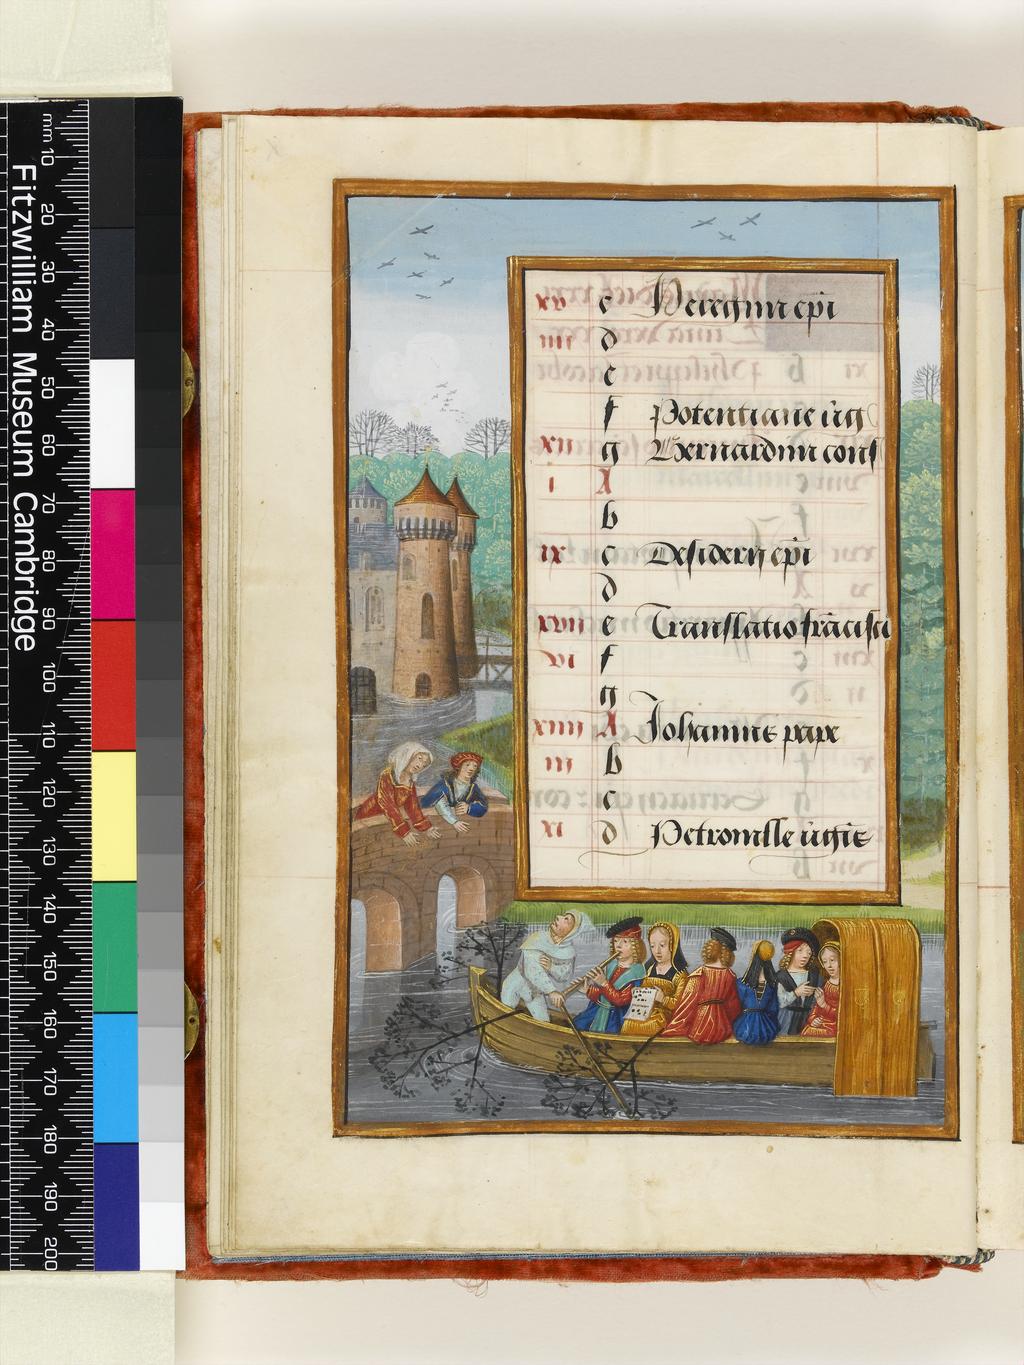 Fitzwilliam Museum Cambridge
mm 10 20 30 40 50 60 70 80 90 100 110 120 130 140 150 160 170 180 190 200
xv c Peregrini epi
iiii d
e
f Potentiane v̄ig
xii g Bernardini conf
i A
b
ix c Desiderij epi
d
xvii e Translatio frācisci
vi f
g
xiiii A Johannis pape
iii b
c
xi d Petronille v̄igis